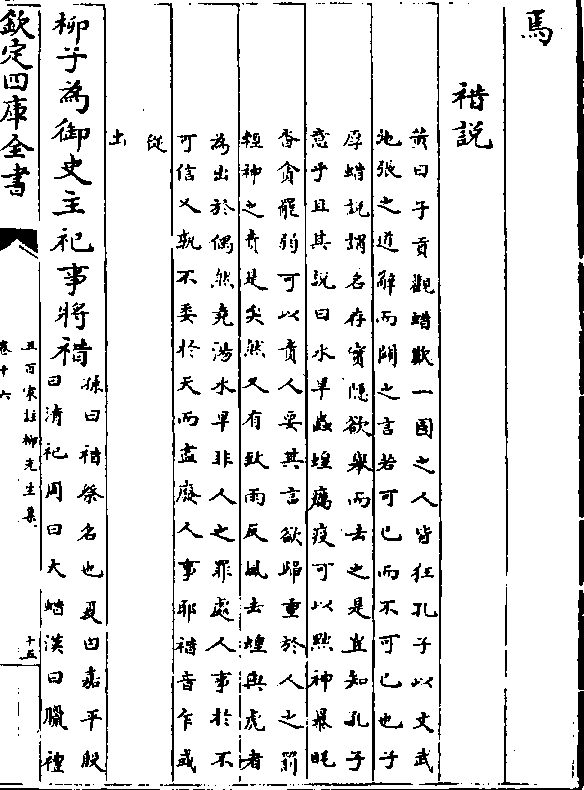 焉
䄍說
黃曰子貢觀蜡歎一國之人皆狂孔子以文武
弛張之道解而闢之言若可已而不可已也子
厚蜡說謂名存實隱欲舉而去之是豈知孔子
意乎且其說曰水旱螽蝗癘疫可以黜神暴眊
沓貪罷弱可以責人要其言欲歸重於人之
輕神之責是矣然又有致雨反風去蝗與虎者
為出於偶然堯湯水旱非人之罪處人事於不
可信又孰不委於天而盡廢人事耶䄍音乍或
從
虫
柳子為御史主祀事將䄍
孫曰䄍祭名也夏曰嘉平殷
曰清祀周曰大蜡漢曰臘禮
欽定四庫全書
五百家註柳先生集
卷十六
十五